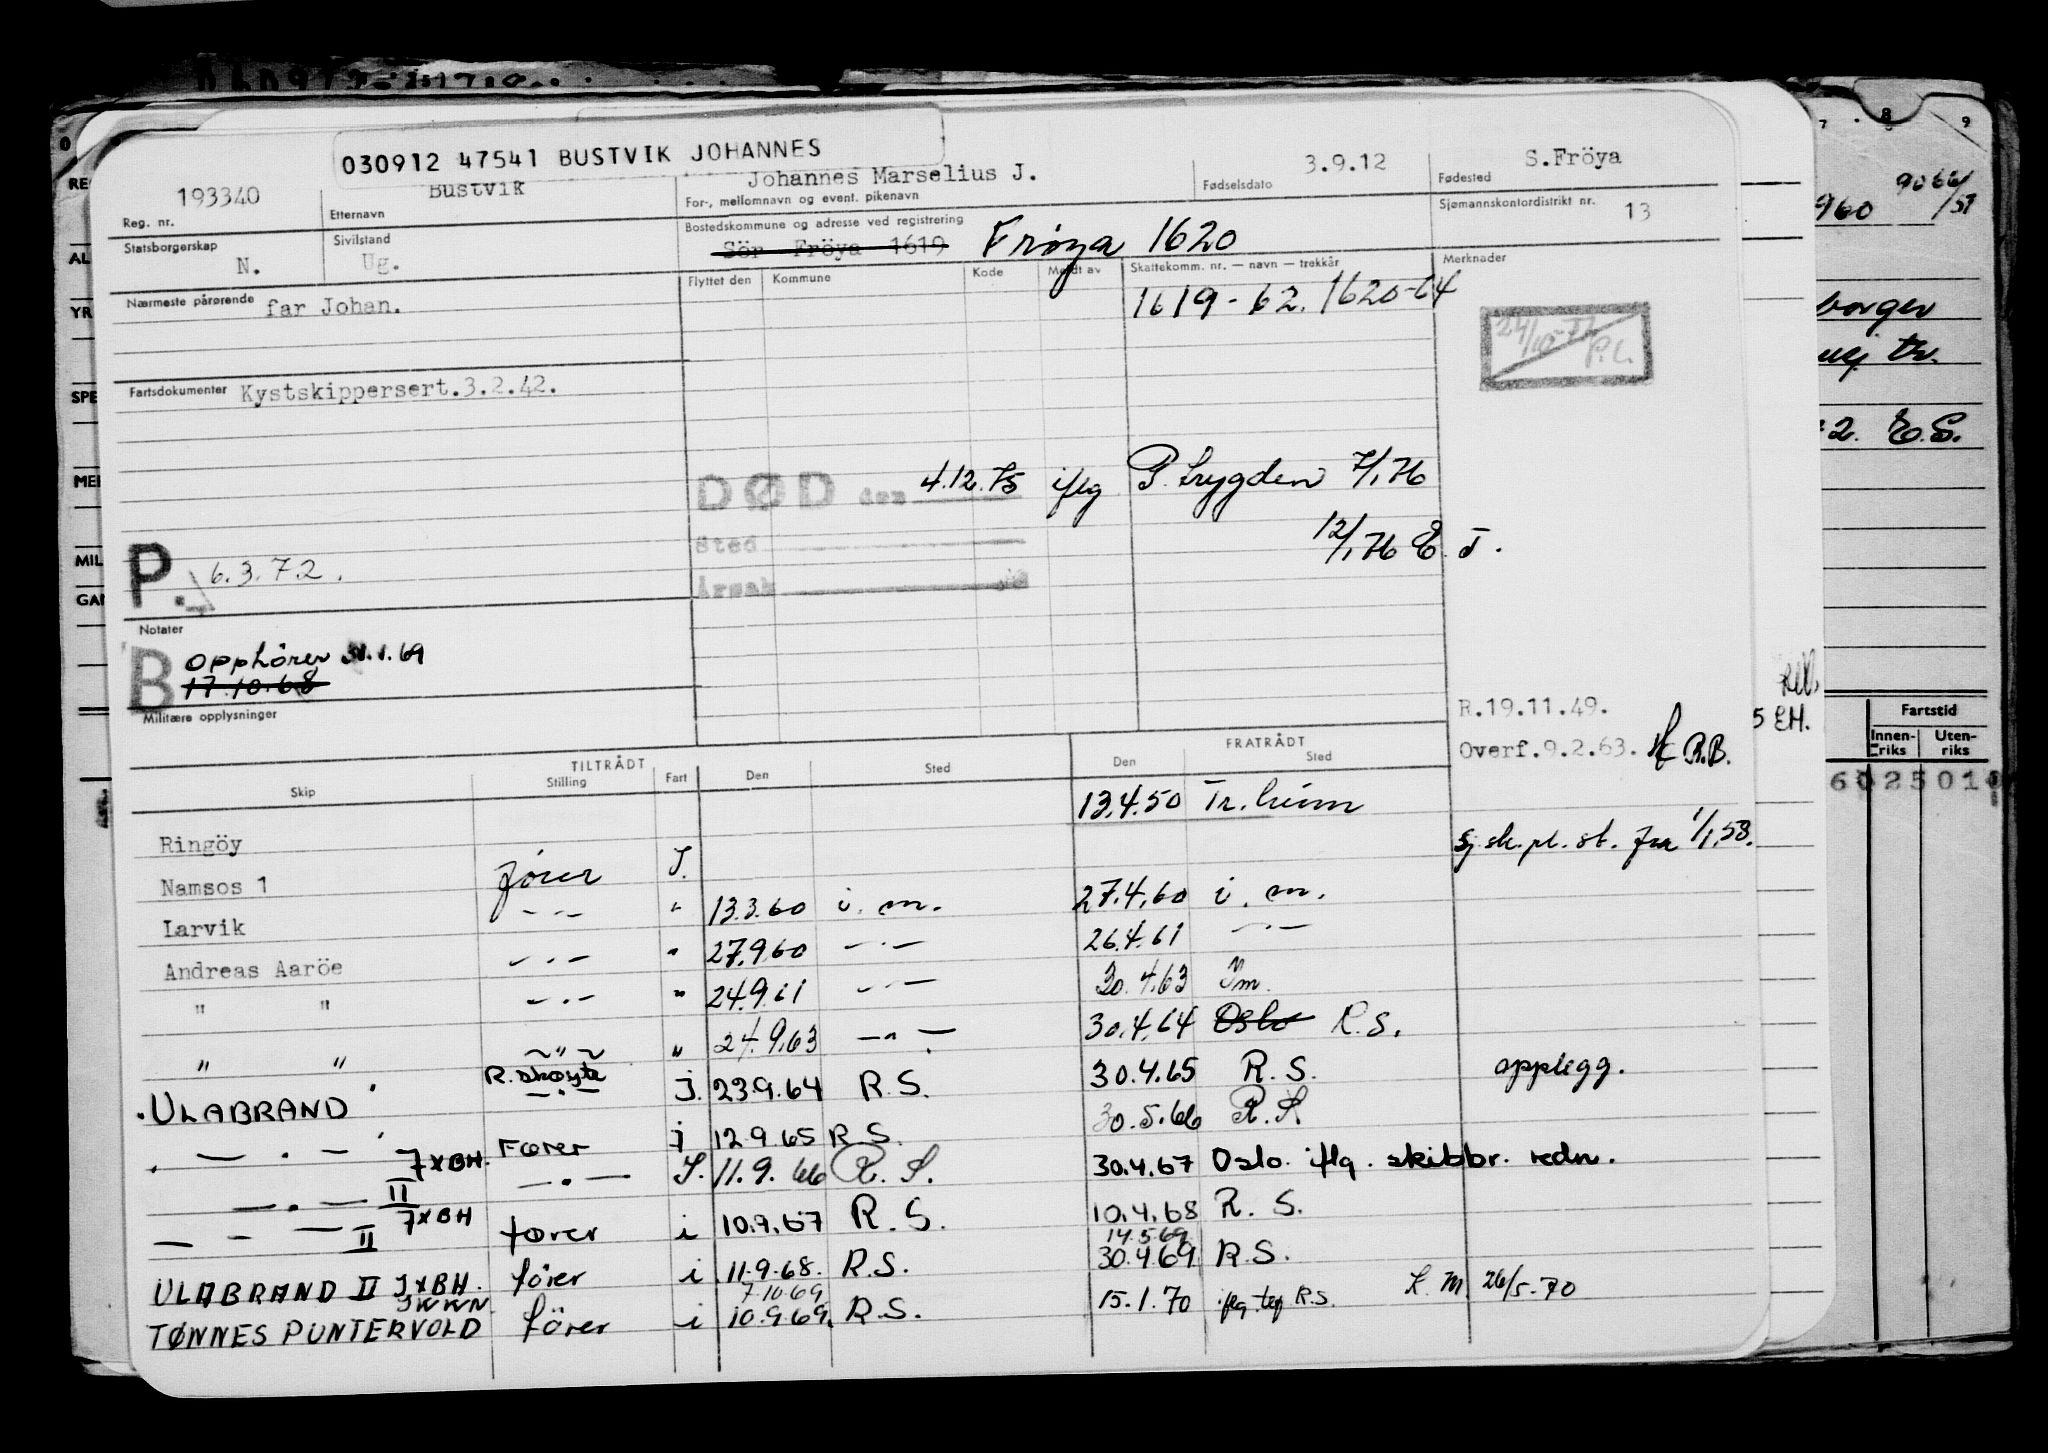 030912 47541 BUSTVIK JOHANNES
193340 Bustvik Johannes Marselius J. 3.9.12 S.Fröya
Reg. nr. Etternavn For-, mellomnavn og event. pikenavn Fødselsdato Fødested
Statsborgerskap N. Sivilstand Ug. Bostedskommune og adresse ved registrering Sör Fröya 1619 Frøya 1620 Sjømannskontordistrikt nr. 13
Nærmeste pårørende far Johan. Flyttet den Kommune Kode Meldt av Skattekomm. nr. — navn — trekkår Merknader
1619-62. 1620-64
24/10-77 P.L.
Fartsdokumenter Kystskippersert.3.2.42.
DØD den 4.12.75 iflg P.trygden 7/1 76
Sted 12/1 76 E.T.
Årsak
P. 6.3.72.
Notater
B Opphører 31.1.69
17.10.68
Militære opplysninger
R.19.11.49.
Overf.9.2.63. R.B.
TILTRÅDT FRATRÅDT
Skip Stilling Fart Den Sted Den Sted
13.4.50 Tr.heim
Ringöy Sj.sk.pl. st. fra 1/1.58.
Namsos 1 fører J.
Larvik - " - " 13.3.60 i. m. 27.4.60 i. m.
Andreas Aaröe - " - " 27.9.60 - " - 26.4.61 - " -
" " - " - " 24.9.61 - " - 30.4.63 Im.
" " - " - " 24.9.63 - " - 30.4.64 Oslo R.S.
. ULABRAND R.skøyte - . - J. 23.9.64 R.S. 30.4.65 R.S. opplegg.
- . - Fører j 12.9.65 R.S. 30.5.66 R.S.
- . - II 7XBH. - . - J. 11.9.66 R.S. 30.4.67 Oslo. iflg. skibbr. redn.
- - - II 7XBH fører i 10.9.67 R.S. 10.4.68 R.S.
14.5.69
ULABRAND II JXBH. fører i 11.9.68. R.S. 30.4.69 R.S.
JWWN 7.10.69
TØNNES PUNTERVOLD fører i 10.9.69. R.S. 15.1.70 iflg. R.S. K.M 26/5-70
9066/51
960
borger
2. E.S.
5 EH.
Fartstid
Innenriks Utenriks
6025010